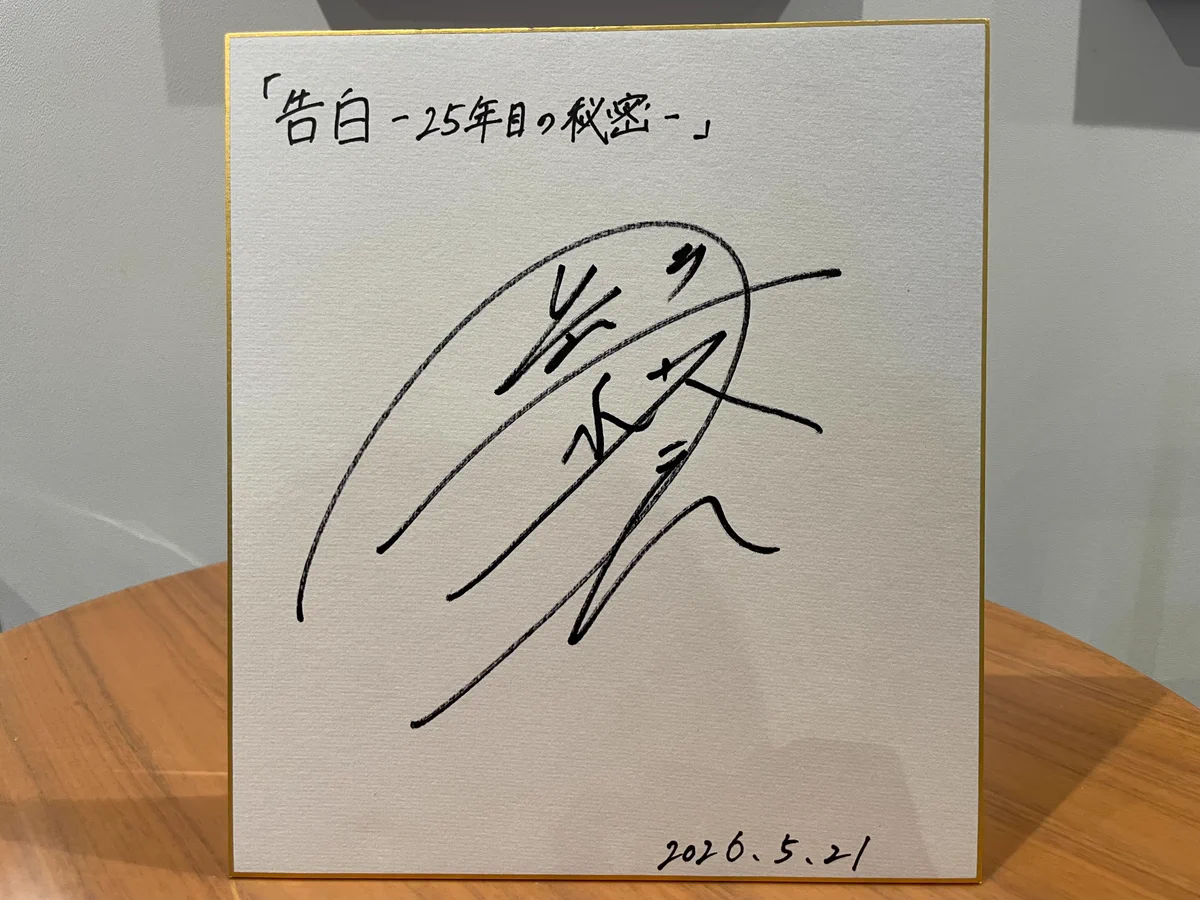 「告白-25年目の秘密-」
2026.5.21